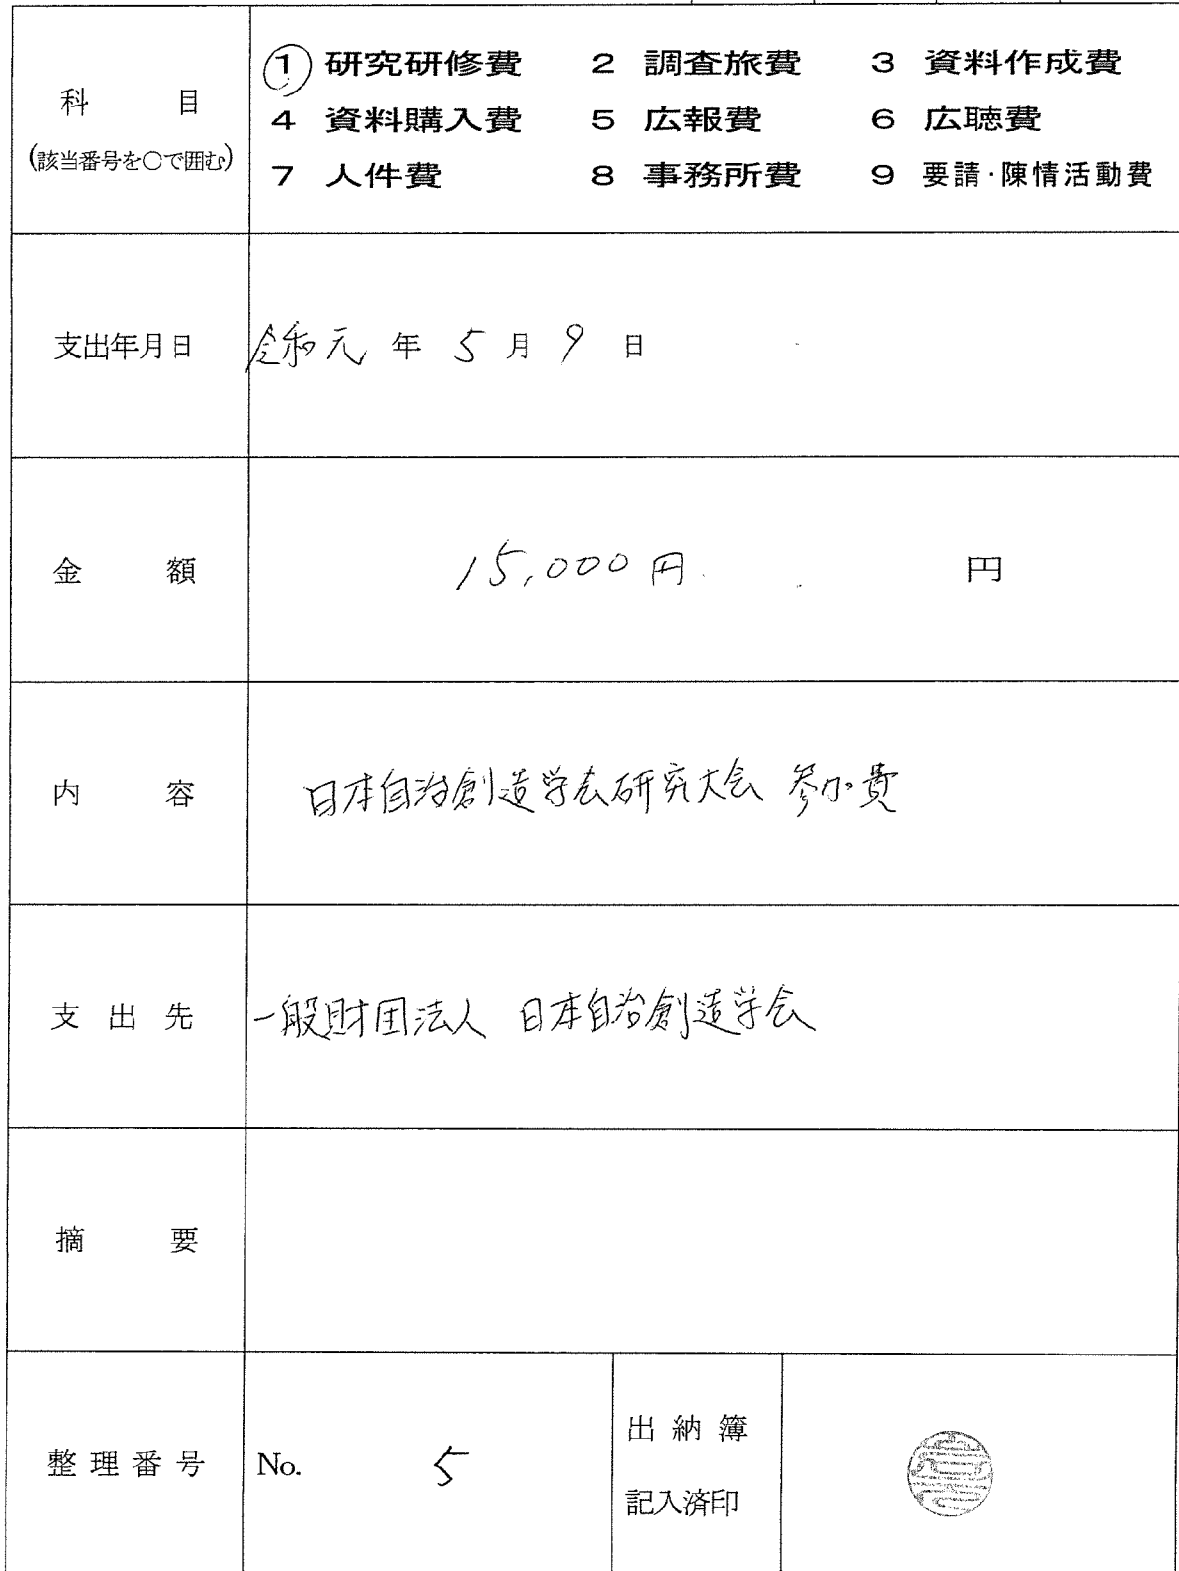 科 目
(該当番号を○で囲む)
1 研究研修費 2 調査旅費 3 資料作成費
4 資料購入費 5 広報費 6 広聴費
7 人件費 8 事務所費 9 要請・陳情活動費
支出年月日 令和元 年 5 月 9 日
金 額 15,000円 円
内 容 日本自治創造学会研究大会 参加費
支出先 一般財団法人 日本自治創造学会
摘 要
整理番号 No. 5
出納簿
記入済印